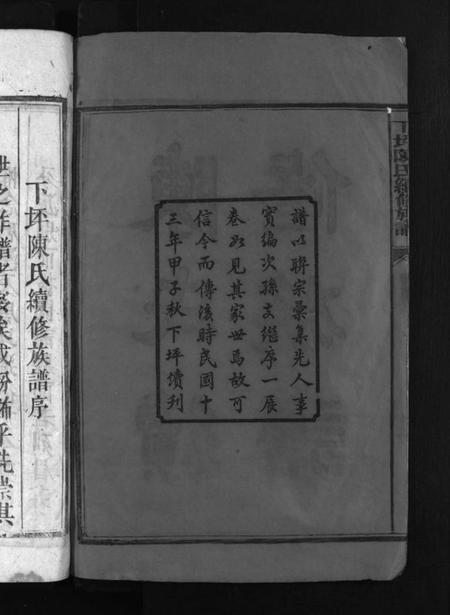 下坪陳氏續修族譜
譜以聯宗彙集先人事
實編次孫支繼序一展
卷如見其家世焉故可
信今而傳後時民國十
三年甲子秋下坪續刋
下坪陳氏續修族譜序
世之作譜者衆矣或
乎先崇其